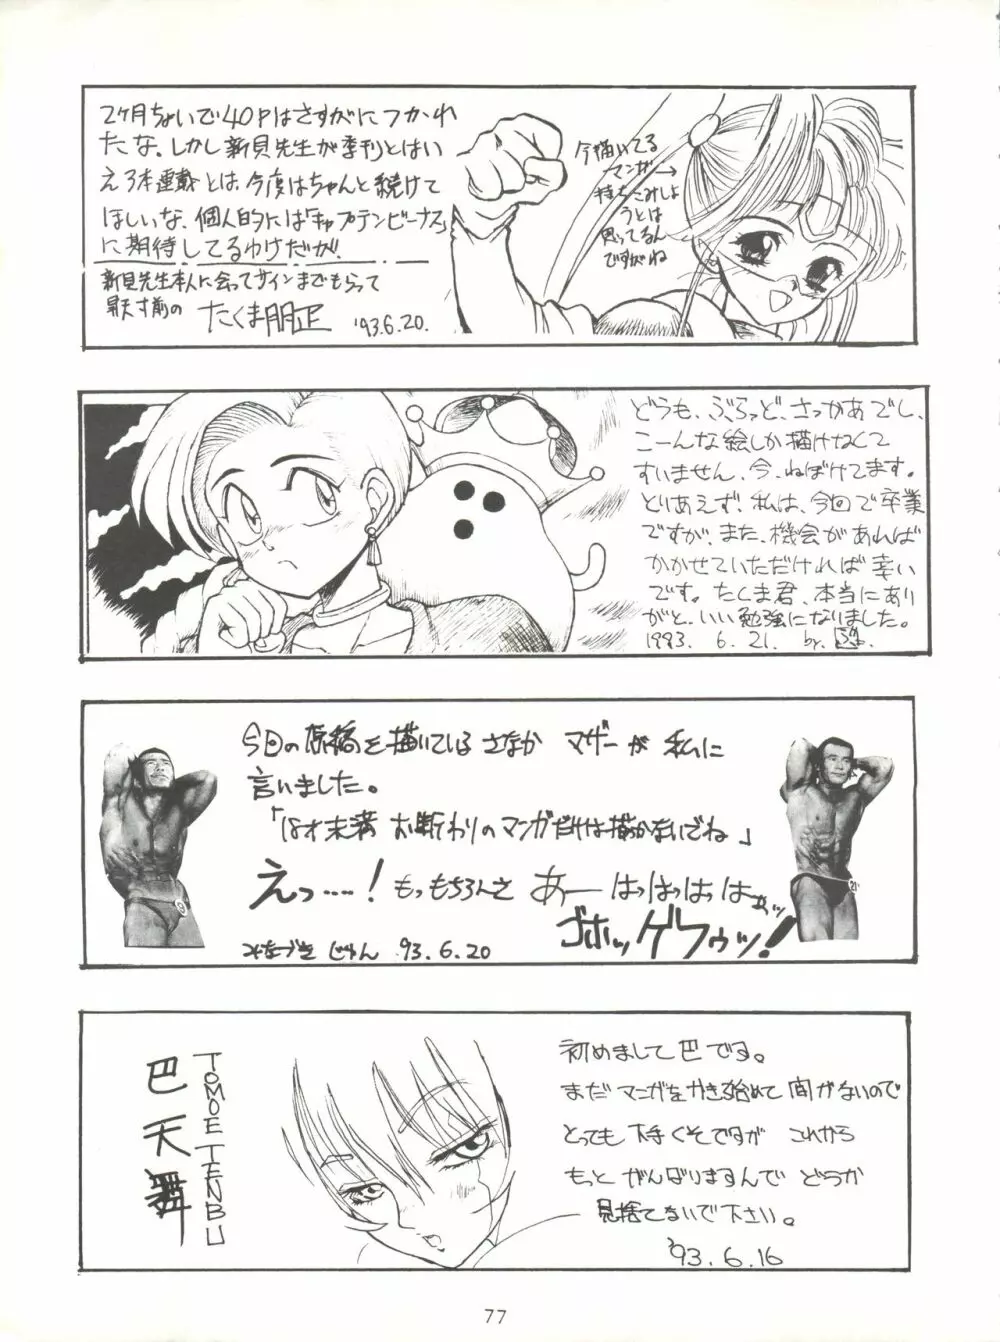 2ヶ月ちょいで40Pはさすがにつかれ
たな。しかし新貝先生が季刊とはい
え3本連載とは。今度はちゃんと続けて
ほしいな、個人的には「キャプテンビーナス」
に期待してるわけだが。
新貝先生本人に会ってサインまでもらって
昇天寸前の たくま朋正 '93.6.20.
今描いてる
マンガ→
持ちこみしよ
うとは
思ってるん
ですがね
どうも、ぶらっど・さっかあでし、
こーんな絵しか描けねくて
すいません、今、ねぼけてます。
とりあえず、私は、今回で卒業
ですが、また、機会があれば
かかせていただければ幸い
です。たくま君、本当にあり
がと、いい勉強になりました。
1993. 6. 21. by.
今回の原稿を描いているさなか マザーが 私に
言いました。
「18才未満 お断わりのマンガだけは描かないでね」
えっ……! もっもちろんさ あーはっはっはっはァッ
ゴホッゲフゥッ!
みなづき じゅん 93.6.20
巴天舞
TOMOE TENBU
初めまして巴です。
まだマンガをかき始めて間がないので
とっても下手くそですが これから
もっと がんばりますんで どうか
見捨てないで下さい。
'93.6.16
77